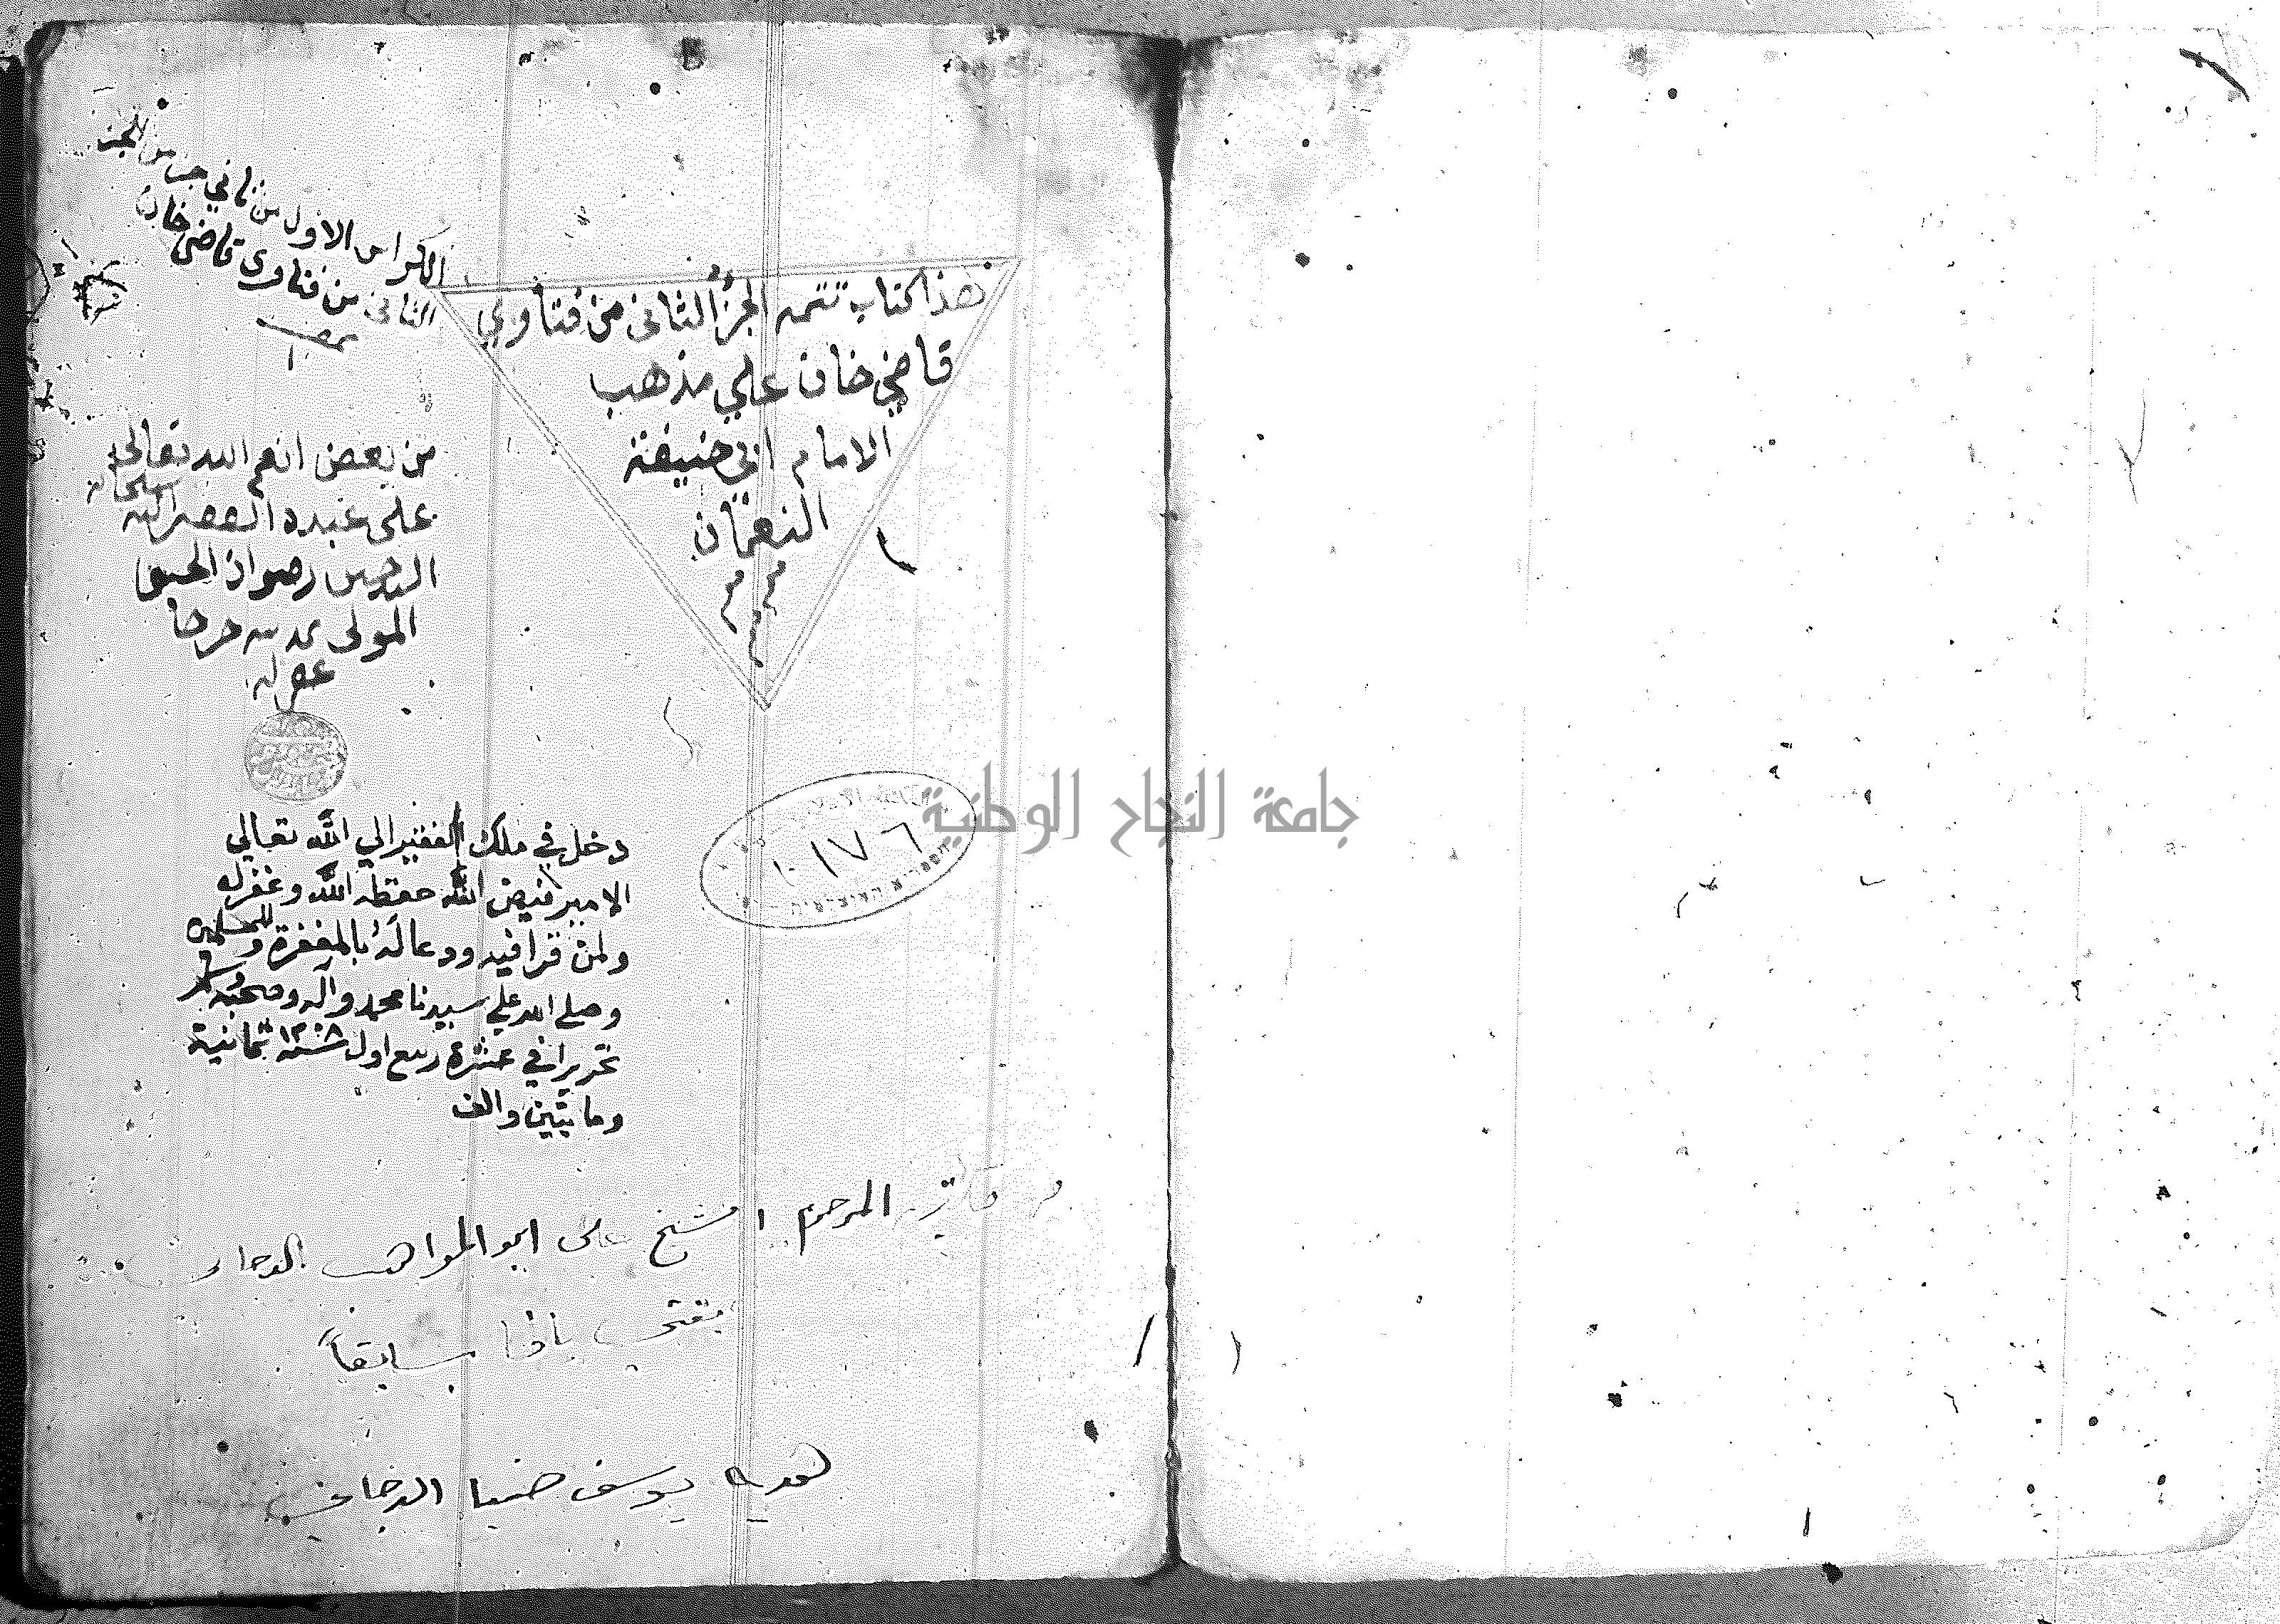 الكراس الاول من ثاني جزء من الجزء
الثاني من فتاوى قاضي خان
هذا كتاب تتمه الجزء الثانى من فتاوي
قاضي خان علي مذهب
الامام ابي حنيفة
النعمان
من بعض انعم الله تعالى
على عبده الفقير اليه سبحانه
رضوان
المولى
عفى له
دخل في ملك الفقير الي الله تعالي
الامير فيض الله حفظه الله وغفر له
ولمن قرا فيه ودعا له بالمغفرة وللمسلمين
وصلي الله علي سيدنا محمد وآله وصحبه وسلم
تحريرا في عشرة ربيع اول سنة ١٢٠٨ ثمانية
ومايتين والف
١٠١٧٦
جامعة النجاح الوطنية
المرحوم الشيخ على ابو المواهب الدجاني
بيافا سابقاً
هديه يوسف ضيا الدجاني